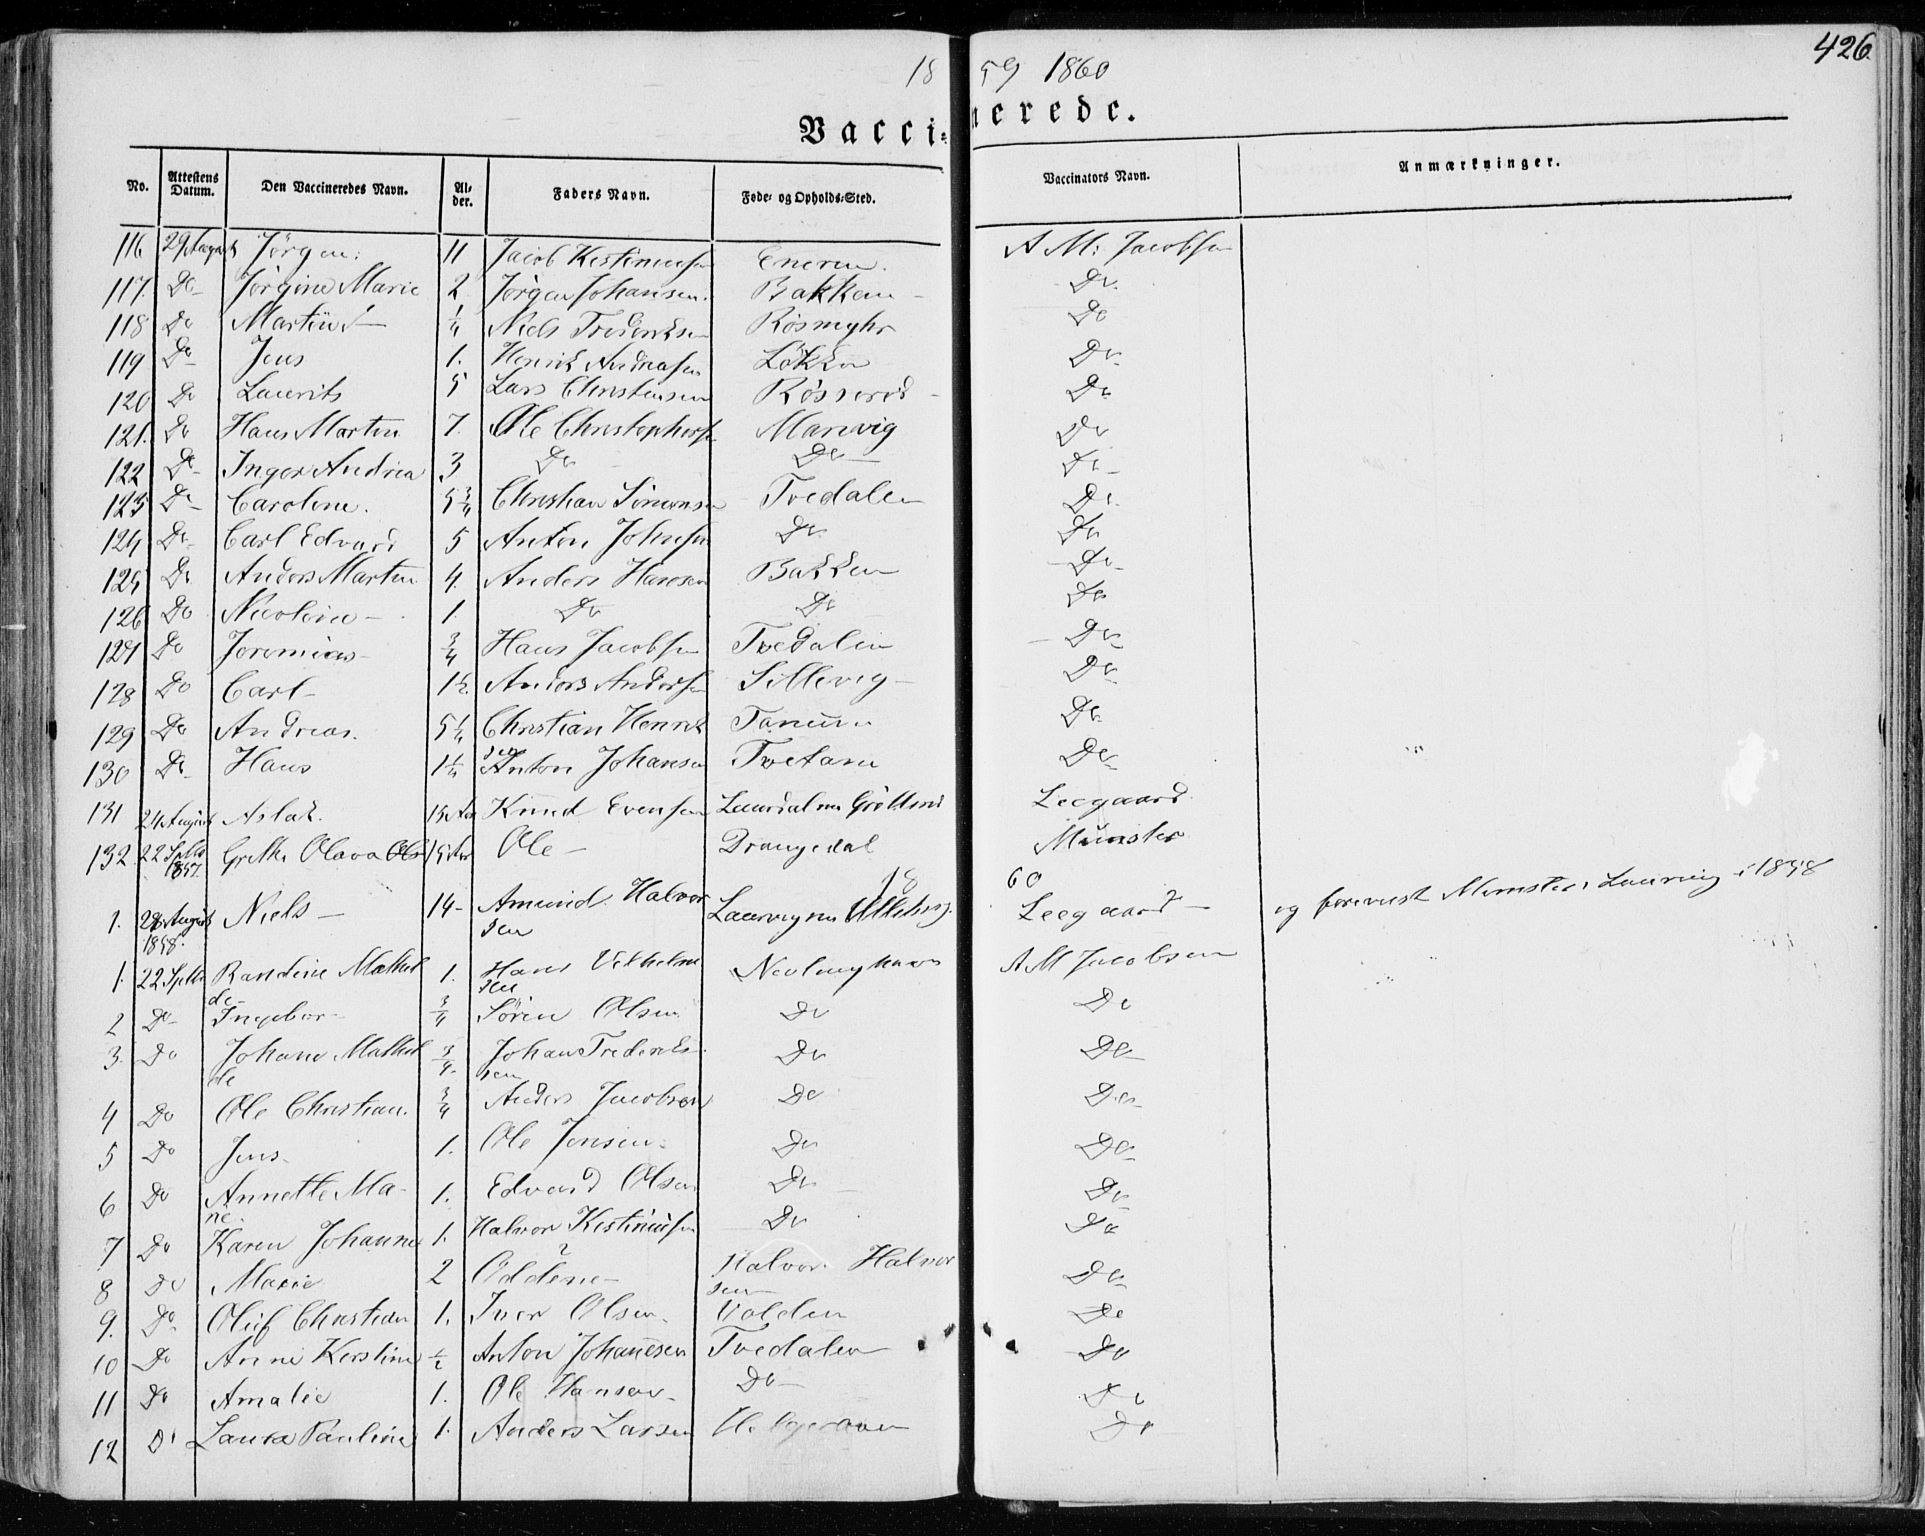 426.
1859 1860
Vaccinerede.
No. Attestens Datum. Den Vaccineredes Navn. Alder. Faders Navn. Føde- og Opholds-Sted. Vaccinators Navn. Anmærkninger.
116 29 August Jørgen 11 Jacob Kistinussen Eneren. A M: Jacobsen
117. Do Jørgine Marie 2 Jørgen Johansen. Bakken Do
118 Do Martin 1/4 Niels Frederiksen Røsmyhr Do
119 Do Jens 1. Henrik Andreasen Løkken Do
120 Do Laurits 5 Lars Christensen Røsserød Do
121. Do Hans Martin 7. Ole Christophersen Manvig Do
122 Do Inger Andrea 3 Do Do Do
123 Do Caroline. 5 3/4 Christian Simonsen Tvedalen Do
124 Do Carl Edvard 5 Anton Johnsen Do Do
125 Do Anders Martin 4. Anders Hansen Bakken Do
126 Do Nicoline 1. Do Do Do
127 Do Jeremias 3/4 Hans Jacobsen Tvedalen Do
128 Do Carl 1 1/2 Anders Andersen Sillevig Do
129 Do Andreas. 5 1/4 Christian Henrik Tanum Do
130 Do Hans 1 1/4 sen Anton Johansen Tvetane Do
131 24 August Aslak. 15 Aar Knud Evensen Laurdal Leegaard
132 22 Septbr 1857. Grethe Olava Ols 15 Aar Ole Drangedal Münster
1860
1. 28 August 1858. Niels 14 Amund Halvor Laurvig Leegaard og forevist Münster i Laurvig i 1858
sen
1. 22 Septbr Randine Mathil 1. Hans Vilhelm Nevlunghavn A M Jacobsen
de sen
2 Do Ingebor 3/4 Sören Olsen Do Do
3. Do Johane Mathil 3/4 Johan Frederik Do Do
de sen
4 Do Ole Christian. 3/4 Anders Jacobsen Do Do
5 Do Jens 1. Ole Jensen Do Do
6 Do Annette Ma- 1. Edvard Olsen Do Do
rie.
7 Do Karen Johanne 1. Halvor Kistinusen Do Do
8 Do Marie 2 Oddene Halvor Halvor Do
sen
9. Do Oluf Christian 1. Iver Olsen Volden Do
10 Do Anne Kerstine 1/2 Anton Johannesen Tvedalen Do
11 Do Amalie 1. Ole Hansen Do Do
12 Do Laura Pauline 1. Anders Larsen Helgeraaen Do